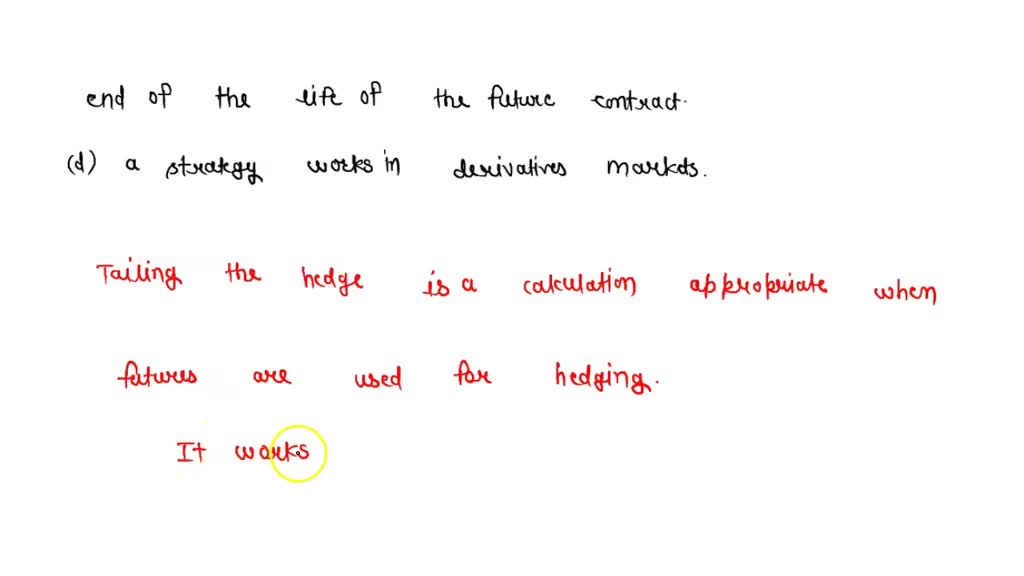 end of the life of the future contract.
(d) a strategy works in derivatives markets.
Tailing the hedge is a calculation appropriate when
futures are used for hedging.
It works